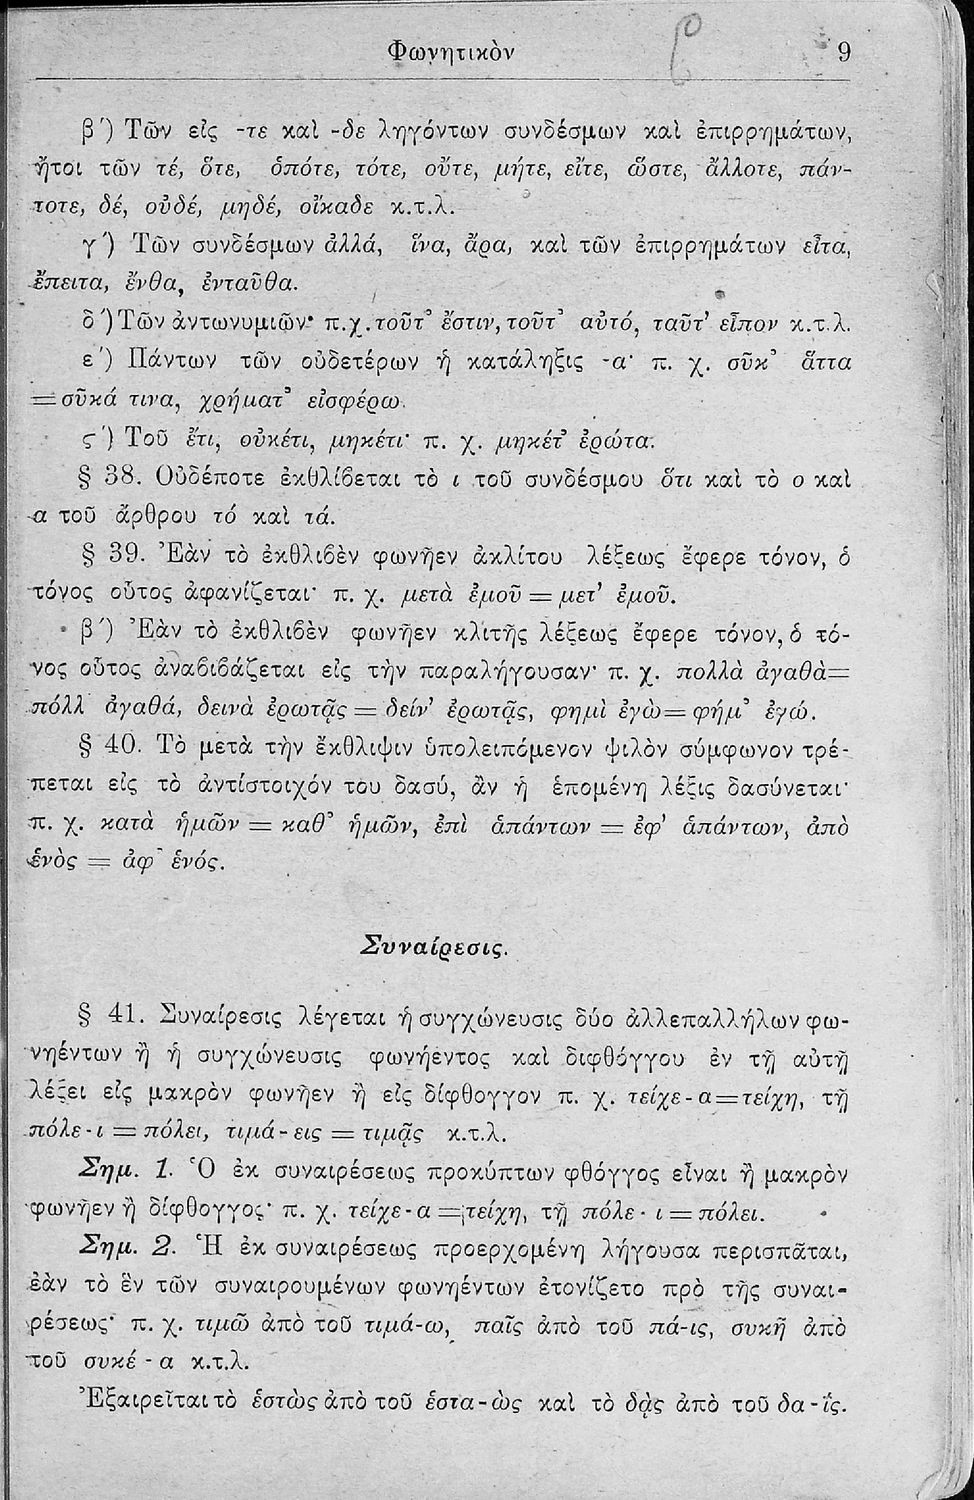 Φωνητικὸν 9
β΄) Τῶν εἰς -τε καὶ -δε ληγόντων συνδέσμων καὶ ἐπιρρημάτων,
ἤτοι τῶν τέ, ὅτε, ὁπότε, τότε, οὔτε, μήτε, εἴτε, ὥστε, ἄλλοτε, πάν-
τοτε, δέ, οὐδέ, μηδέ, οἴκαδε κ.τ.λ.
γ΄) Τῶν συνδέσμων ἀλλά, ἵνα, ἄρα, καὶ τῶν ἐπιρρημάτων εἶτα,
ἔπειτα, ἔνθα, ἐνταῦθα.
δ΄) Τῶν ἀντωνυμιῶν· π.χ. τοῦτ᾿ ἔστιν, τοῦτ᾿ αὐτό, ταῦτ᾿ εἶπον κ.τ.λ.
ε΄) Πάντων τῶν οὐδετέρων ἡ κατάληξις -α· π. χ. σῦκ᾿ ἅττα
= σῦκά τινα, χρήματ᾿ εἰσφέρω.
ς΄) Τοῦ ἔτι, οὐκέτι, μηκέτι· π. χ. μηκέτ᾿ ἐρώτα.
§ 38. Οὐδέποτε ἐκθλίβεται τὸ ι τοῦ συνδέσμου ὅτι καὶ τὸ ο καὶ
α τοῦ ἄρθρου τό καὶ τά.
§ 39. Ἐὰν τὸ ἐκθλιβὲν φωνῆεν ἀκλίτου λέξεως ἔφερε τόνον, ὁ
τόνος οὗτος ἀφανίζεται· π. χ. μετὰ ἐμοῦ = μετ᾿ ἐμοῦ.
β΄) Ἐὰν τὸ ἐκθλιβὲν φωνῆεν κλιτῆς λέξεως ἔφερε τόνον, ὁ τό-
νος οὗτος ἀναβιβάζεται εἰς τὴν παραλήγουσαν· π. χ. πολλὰ ἀγαθὰ=
πόλλ᾿ ἀγαθά, δεινὰ ἐρωτᾷς = δείν᾿ ἐρωτᾷς, φημὶ ἐγὼ = φήμ᾿ ἐγώ.
§ 40. Τὸ μετὰ τὴν ἔκθλιψιν ὑπολειπόμενον ψιλὸν σύμφωνον τρέ-
πεται εἰς τὸ ἀντίστοιχόν του δασύ, ἂν ἡ ἑπομένη λέξις δασύνεται·
π. χ. κατὰ ἡμῶν = καθ᾿ ἡμῶν, ἐπὶ ἁπάντων = ἐφ᾿ ἁπάντων, ἀπὸ
ἑνὸς = ἀφ᾿ ἑνός.
Συναίρεσις.
§ 41. Συναίρεσις λέγεται ἡ συγχώνευσις δύο ἀλλεπαλλήλων φω-
νηέντων ἢ ἡ συγχώνευσις φωνήεντος καὶ διφθόγγου ἐν τῇ αὐτῇ
λέξει εἰς μακρὸν φωνῆεν ἢ εἰς δίφθογγον π. χ. τείχε-α=τείχη, τῇ
πόλε-ι = πόλει, τιμά-εις = τιμᾷς κ.τ.λ.
Σημ. 1. Ὁ ἐκ συναιρέσεως προκύπτων φθόγγος εἶναι ἢ μακρὸν
φωνῆεν ἢ δίφθογγος· π. χ. τείχε-α = τείχη, τῇ πόλε-ι = πόλει.
Σημ. 2. Ἡ ἐκ συναιρέσεως προερχομένη λήγουσα περισπᾶται,
ἐὰν τὸ ἓν τῶν συναιρουμένων φωνηέντων ἐτονίζετο πρὸ τῆς συναι-
ρέσεως· π. χ. τιμῶ ἀπὸ τοῦ τιμά-ω, παῖς ἀπὸ τοῦ πά-ις, συκῆ ἀπὸ
τοῦ συκέ-α κ.τ.λ.
Ἐξαιρεῖται τὸ ἑστὼς ἀπὸ τοῦ ἑστα-ὼς καὶ τὸ δᾲς ἀπὸ τοῦ δα-ΐς.